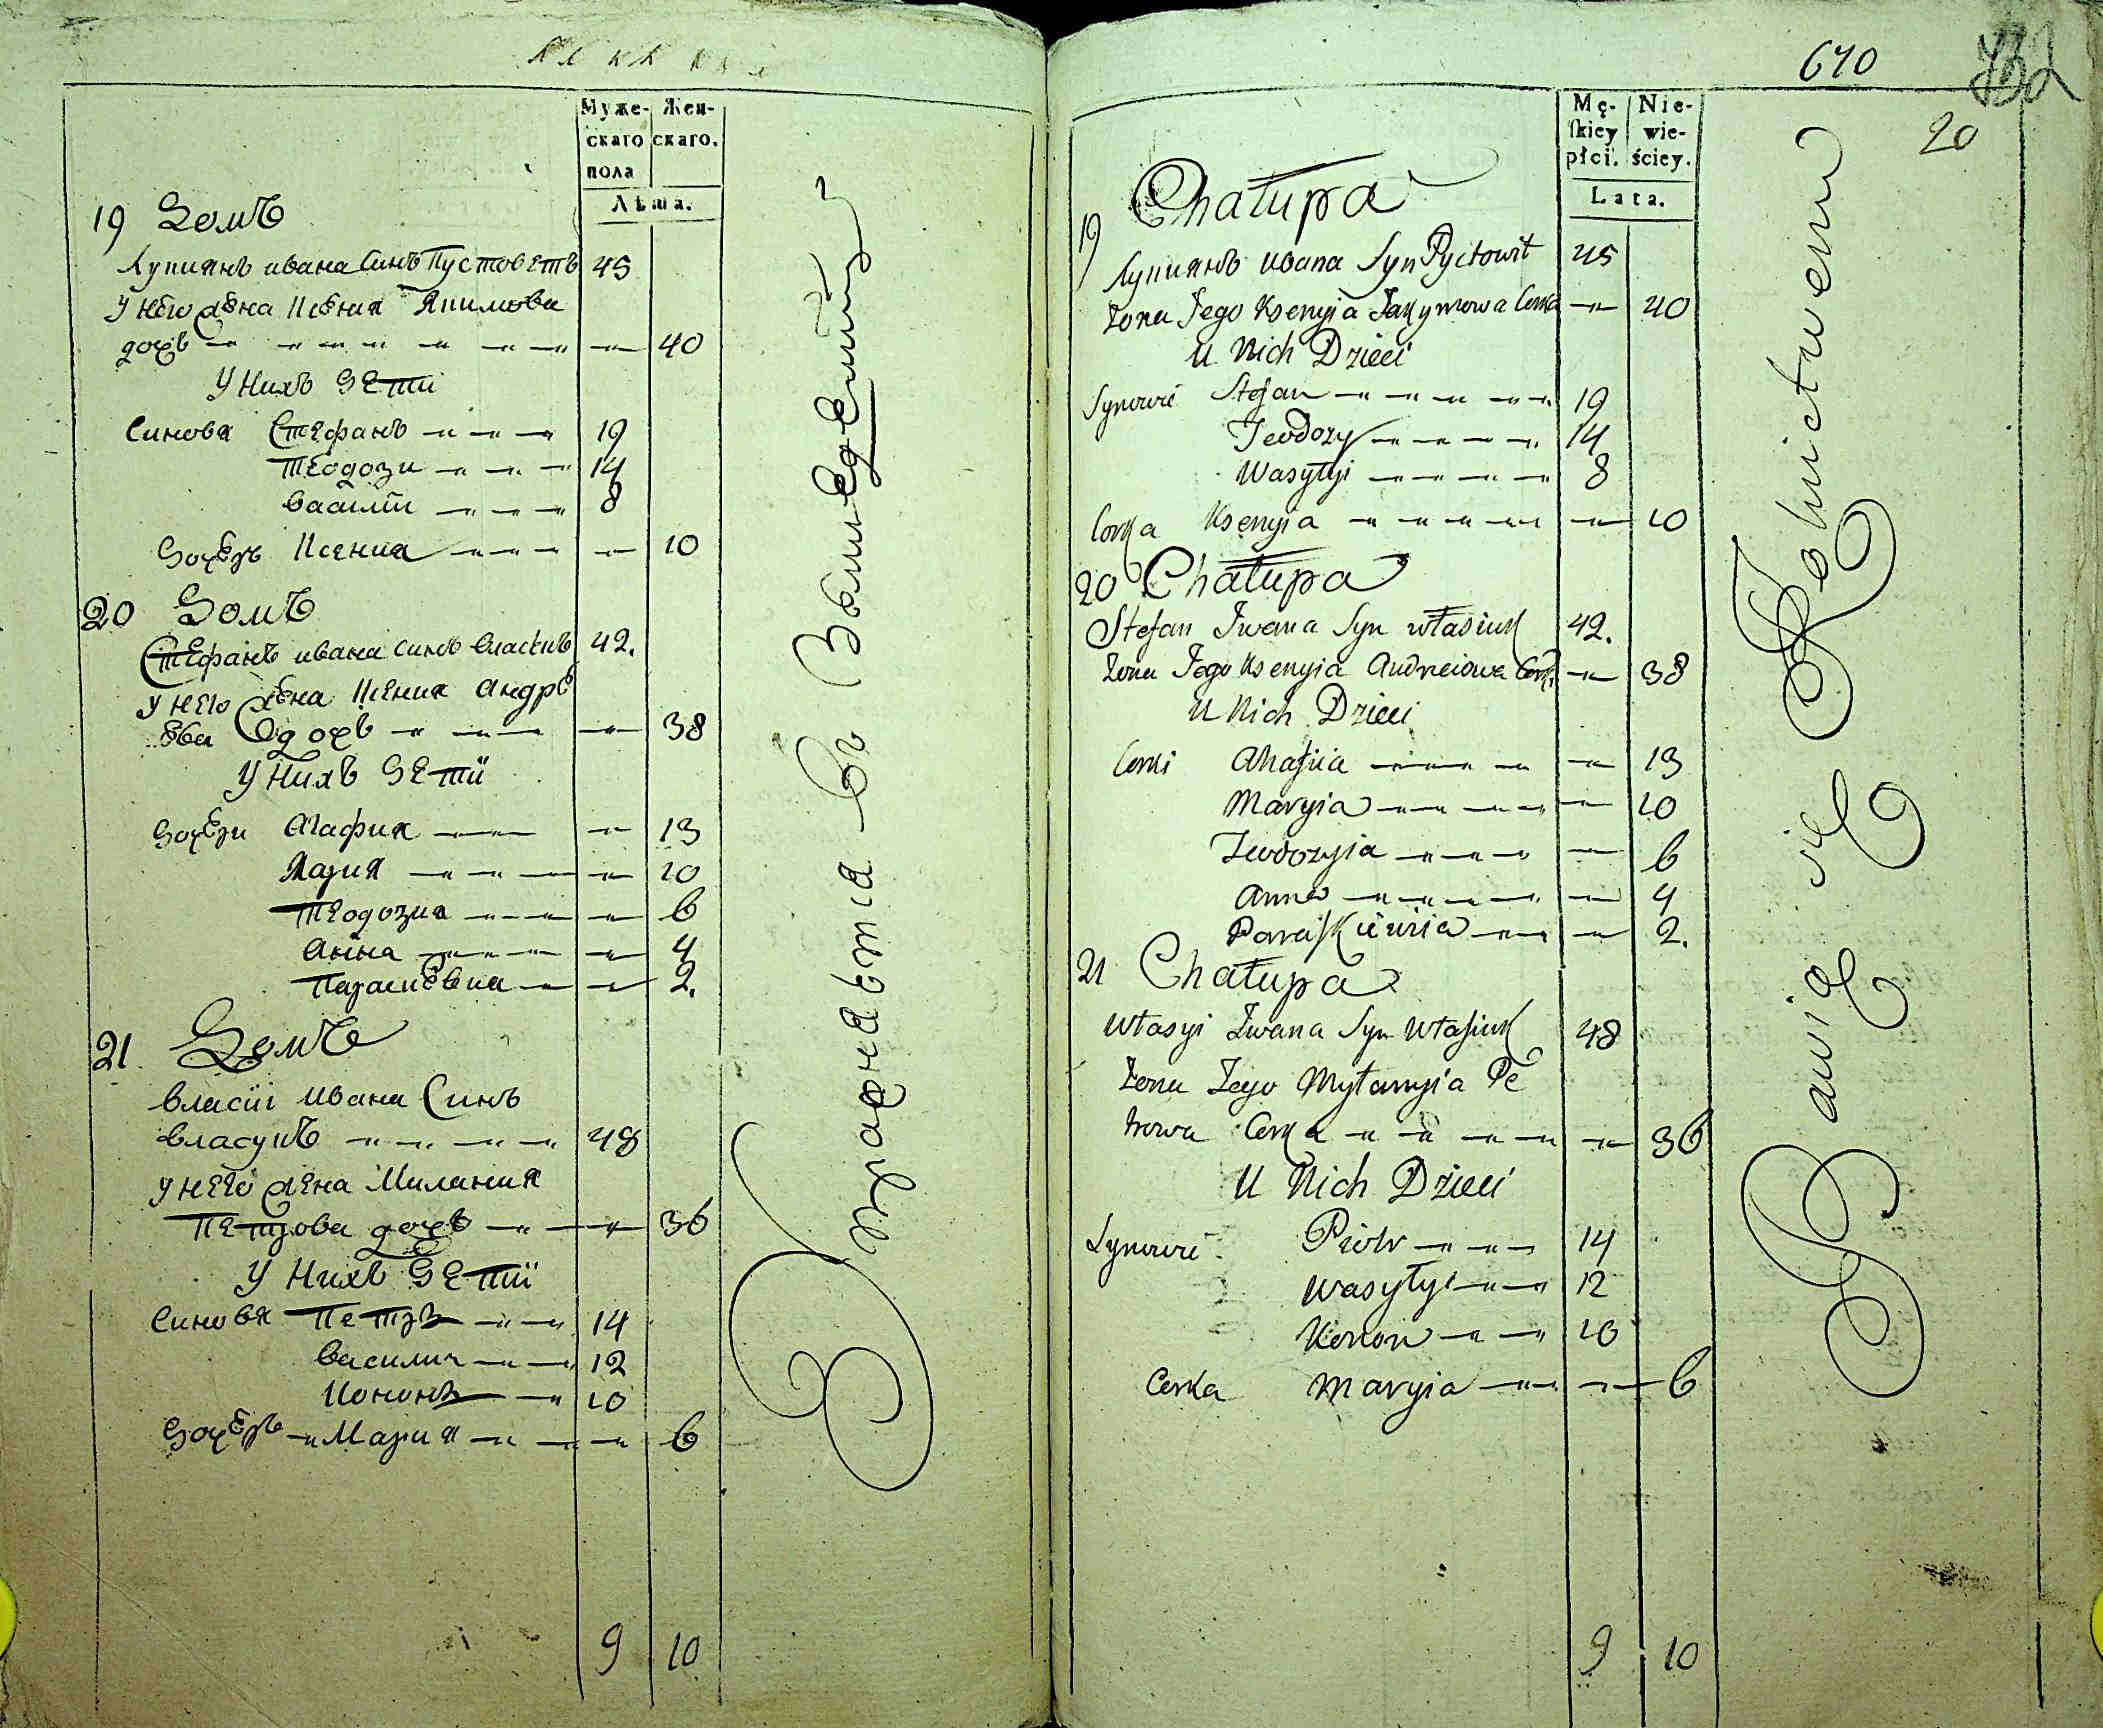 Муже-
скаго
пола
Жен-
скаго.
Лѣта.
19 Домъ
Лупианъ ивана Синъ Пустоветъ 45
У него жена Ксения Якимова
дочь 40
У Нихъ Дети
Синовя Стефанъ 19
Теодози 14
Василіи 8
Дочерь Ксения 10
20 Домъ
Стефанъ ивана синъ Власюкъ 42.
У него жена Ксения Андре
ева дочь 38
У Нихъ Дети
Дочери Агафия 13
Мария 10
Теодозиа 6
Анна 4
Параскевиа 2.
21 Домъ
Власіи Ивана Синъ
Власукъ 48
У него жена Милания
Петрова дочь 36
У Нихъ Дети
Синовя Петръ 14
Василии 12
Кононъ 10
Дочерь Мария 6
9 10
670
20
Mę-
skiey
płci.
Nie-
wie-
ściey.
Lata.
19 Chałupa
Лупианъ Ивана Syn Pyctowit 45
Żona Jego Ksenyia Jakymowa Corka 40
U Nich Dzieci
Synowie Stefan 19
Teodozy 14
Wasylyi 8
Corka Ksenyia 10
20 Chałupa
Stefan Iwana Syn Własiuk 42.
Żona Jego Ksenyia Andreiowa Cork. 38
U Nich Dzieci
Corki Ahafiia 13
Maryia 10
Teodozyia 6
Anna 4
Paraskiewiia 2.
21 Chałupa
Własyi Iwana Syn Własiuk 48
Żona Jego Myłanyia Pe
trowa Corka 36
U Nich Dzieci
Synowie Piotr 14
Wasyłyi 12
Konon 10
Corka Maryia 6
9 10